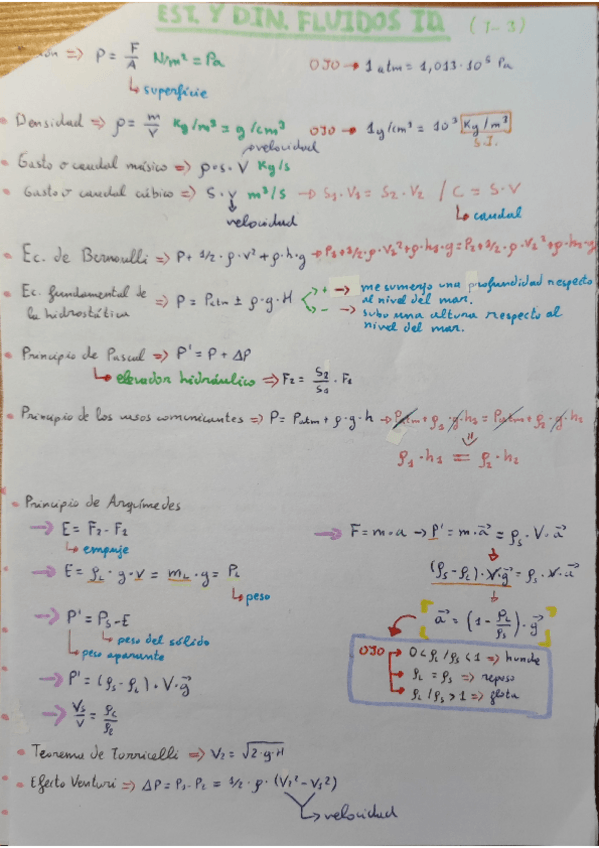 EST. Y DIN. FLUIDOS ID (1-3)
=> P = F/A N/m² = Pa OJO → 1 atm = 1,013·10⁵ Pa
superficie
• Densidad => ρ = m/V Kg/m³ = g/cm³ OJO → 1g/cm³ = 10³ Kg/m³
S.I.
velocidad
• Gasto o caudal másico => ρ·s·V Kg/s
• Gasto o caudal cúbico => S·v m³/s → S₁·V₁ = S₂·V₂ / C = S·V
velocidad
caudal
• Ec. de Bernoulli => P + 1/2·ρ·v² + ρ·h·g → P₁+1/2·ρ·V₁²+ρ·h₁·g = P₂+1/2·ρ·V₂²+ρ·h₂·g
• Ec. fundamental de la hidrostática => P = Patm ± ρ·g·H
+ → me sumerjo una profundidad respecto
al nivel del mar.
- → subo una altura respecto al
nivel del mar.
• Principio de Pascal => P' = P + ΔP
elevador hidráulico => F₂ = S₂/S₁ · F₁
• Principio de los vasos comunicantes => P = Patm + ρ·g·h → Patm + ρ₁·g·h₁ = Patm + ρ₂·g·h₂
ρ₁·h₁ = ρ₂·h₂
• Principio de Arquímedes
→ E = F₂ - F₂
empuje
→ E = ρL·g·v = mL·g = PL
peso
→ P' = Ps - E
peso del sólido
peso aparante
→ P' = (ρs - ρL)·V·g⃗
→ Vs/V = ρs/ρL
→ F = m·a → P' = m·a⃗ = ρs·V·a⃗
(ρs - ρL)·V·g⃗ = ρs·V·a⃗
a⃗ = (1 - ρL/ρs)·g⃗
OJO → 0 < ρL/ρs < 1 => hunde
ρL = ρs => reposo
ρL/ρs > 1 => flota
• Teorema de Torricelli => V₂ = √2·g·H
• Efecto Venturi => ΔP = P₁ - P₂ = 1/2·ρ·(V₂² - V₁²)
velocidad